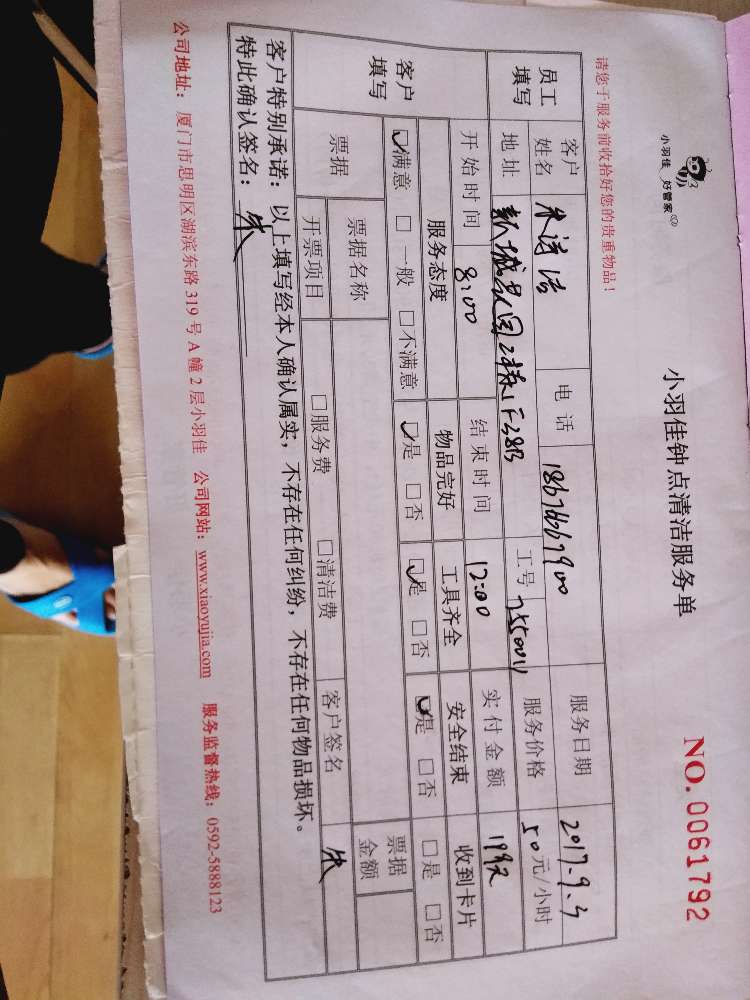 小羽佳 好管家®
小羽佳钟点清洁服务单
NO. 0061792
请您于服务前收拾好您的贵重物品！
员工填写 客户姓名 朱诗洁 电话 服务日期 2017.9.3
地址 工号 服务价格 50元/小时
开始时间 8:00 结束时间 12:00 实付金额
客户填写 服务态度 物品完好 工具齐全 安全结束 收到卡片
☑满意 □一般 □不满意 ☑是 □否 ☑是 □否 ☑是 □否 □是 □否
票据 票据名称 票据金额
开票项目 □服务费 □清洁费 客户签名 朱
客户特别承诺：以上填写经本人确认属实，不存在任何纠纷，不存在任何物品损坏。
特此确认签名：朱
公司地址：厦门市思明区湖滨东路 319 号 A 幢 2 层小羽佳 公司网站：www.xiaoyujia.com 服务监督热线：0592-5888123